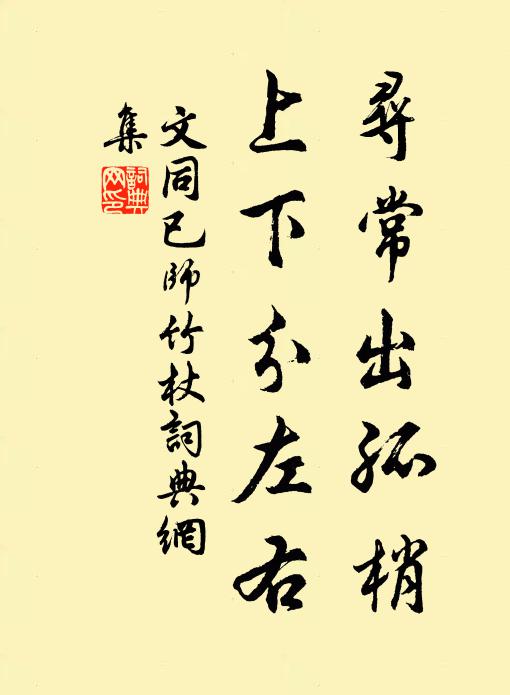 尋常出孤梢
上下分左右
文同已師竹杖詞典網
集
詞典网印